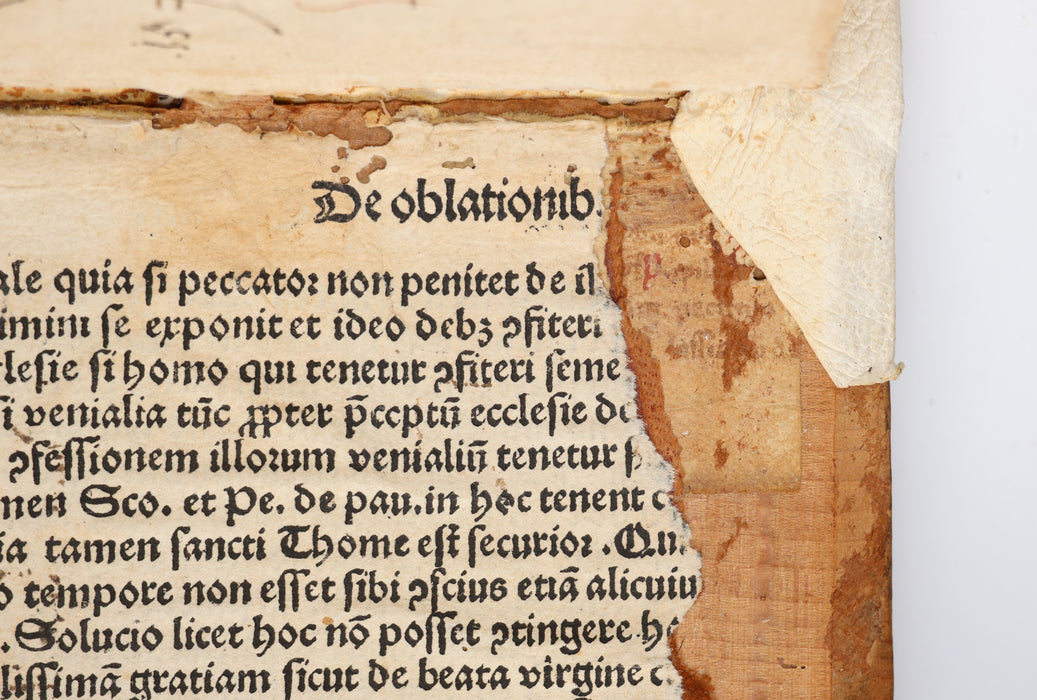 De oblationib
ale quia si peccator non penitet de il
imini se exponit et ideo debꝫ ꝯfiteri
clesie si homo qui tenetur ꝯfiteri seme
si venialia tūc ꝓpter p̄ceptū ecclesie de
ꝯfessionem illorum venialiū tenetur
men Sco. et Pe. de pau. in hoc tenent
ia tamen sancti Thome est securior. Qu
o tempore non esset sibi ꝯscius etiā alicuiu
. Solucio licet hoc nō posset ꝯtingere
lissimā gratiam sicut de beata virgine